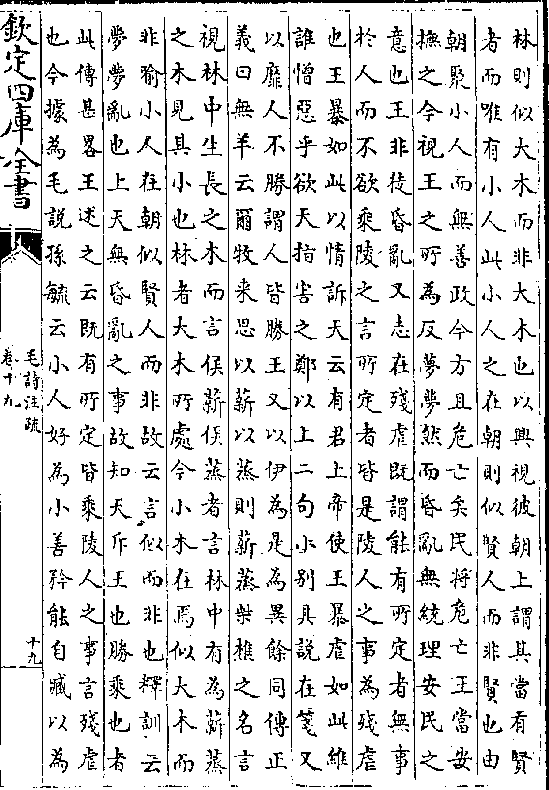 林則似大木而非大木也以興視彼朝上謂其當有賢
者而唯有小人此小人之在朝則似賢人而非賢也由
朝聚小人而無善政今方且危亡矣民將危亡王當安
撫之今視王之所為反夢夢然而昏亂無統理安民之
意也王非徒昏亂又志在殘虐既謂能有所定者無事
於人而不欲乘陵之言所定者皆是陵人之事為殘虐
也王暴如此以情訴天云有君上帝使王暴虐如此維
誰憎惡乎欲天指害之鄭以上二句小別具說在箋又
以靡人不勝謂人皆勝王又以伊為是為異餘同傳正
義曰無羊云爾牧來思以薪以蒸則薪蒸柴樵之名言
視林中生長之木而言侯薪侯蒸者言林中有為薪蒸
之木見其小也林者大木所處今小木在焉似大木而
非喻小人在朝似賢人而非故云言似而非也釋訓云
夢夢亂也上天無昏亂之事故知天斥王也勝乘也者
此傳甚畧王述之云既有所定皆乘陵人之事言殘虐
也今據為毛說孫毓云小人好為小善矜能自臧以為
欽定四庫全書
毛詩注疏
卷十九
十九